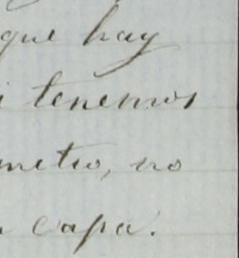 que hay
i tenemos
metro, no
capa.